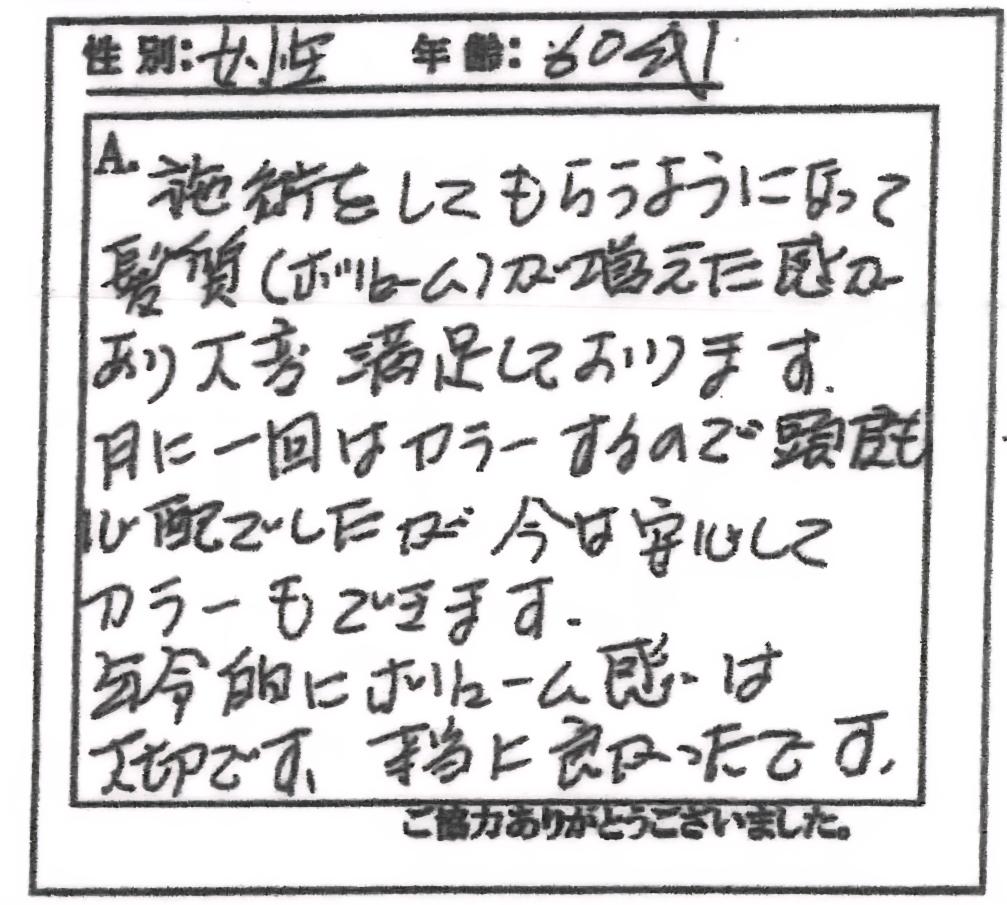 性別:女性 年齢:60代
A. 施術をしてもらうようになって
髪質(ボリューム)が増えた感が
あり大変満足しております.
月に一回はカラーするので頭皮も
心配でしたが今は安心して
カラーもできます.
年令的にボリューム感は
大切です、本当に良かったです.
ご協力ありがとうございました。